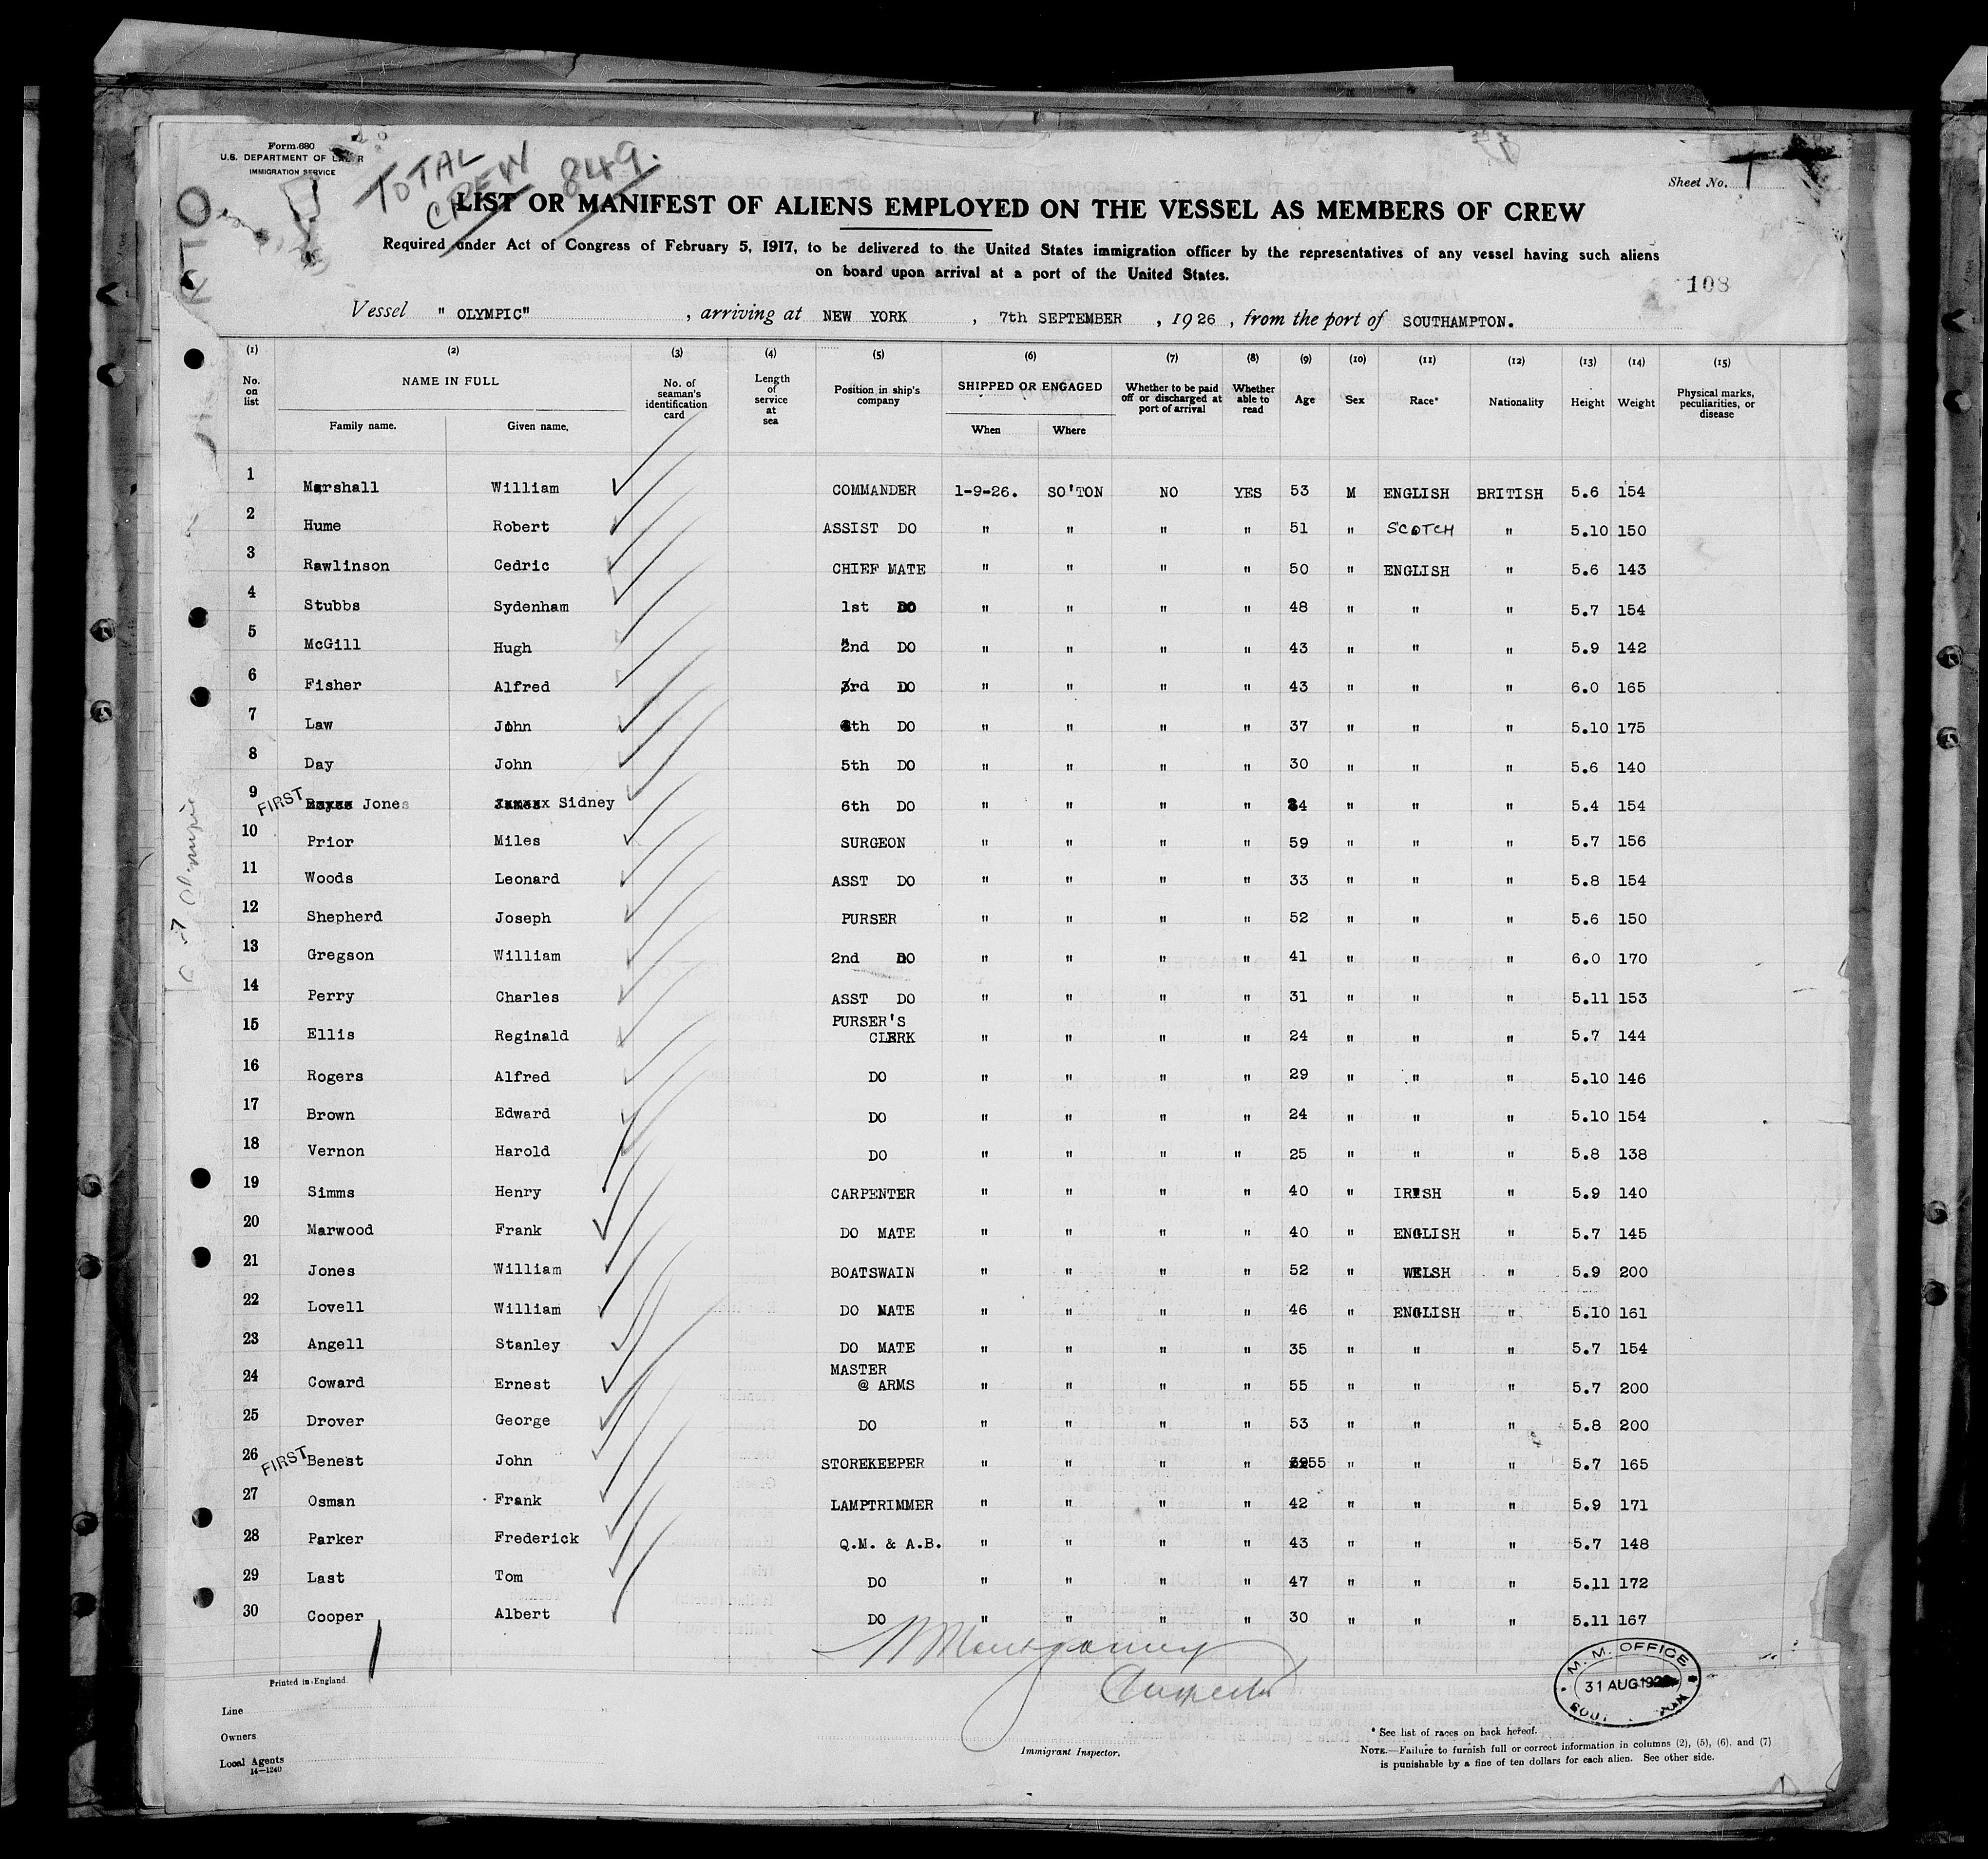 Form 680
U.S. DEPARTMENT OF LABOR
IMMIGRATION SERVICE
TOTAL
CREW 849.
Sheet No. 1
LIST OR MANIFEST OF ALIENS EMPLOYED ON THE VESSEL AS MEMBERS OF CREW
Required under Act of Congress of February 5, 1917, to be delivered to the United States immigration officer by the representatives of any vessel having such aliens
on board upon arrival at a port of the United States.
108
Vessel " OLYMPIC" , arriving at NEW YORK , 7th SEPTEMBER , 1926 , from the port of SOUTHAMPTON.
(1) (2) (3) (4) (5) (6) (7) (8) (9) (10) (11) (12) (13) (14) (15)
No. on list NAME IN FULL No. of seaman's identification card Length of service at sea Position in ship's company SHIPPED OR ENGAGED Whether to be paid off or discharged at port of arrival Whether able to read Age Sex Race* Nationality Height Weight Physical marks, peculiarities, or disease
Family name. Given name. When Where
1 Marshall William COMMANDER 1-9-26. SO'TON NO YES 53 M ENGLISH BRITISH 5.6 154
2 Hume Robert ASSIST DO " " " " 51 " SCOTCH " 5.10 150
3 Rawlinson Cedric CHIEF MATE " " " " 50 " ENGLISH " 5.6 143
4 Stubbs Sydenham 1st DO " " " " 48 " " " 5.7 154
5 McGill Hugh 2nd DO " " " " 43 " " " 5.9 142
6 Fisher Alfred 3rd DO " " " " 43 " " " 6.0 165
7 Law John 4th DO " " " " 37 " " " 5.10 175
8 Day John 5th DO " " " " 30 " " " 5.6 140
9 FIRST Jones Sidney 6th DO " " " " " " " 5.4 154
10 Prior Miles SURGEON " " " " 59 " " " 5.7 156
11 Woods Leonard ASST DO " " " " 33 " " " 5.8 154
12 Shepherd Joseph PURSER " " " " 52 " " " 5.6 150
13 Gregson William 2nd DO " " " " 41 " " " 6.0 170
14 Perry Charles ASST DO " " " " 31 " " " 5.11 153
15 Ellis Reginald PURSER'S CLERK " " " " 24 " " " 5.7 144
16 Rogers Alfred DO " " " " 29 " " " 5.10 146
17 Brown Edward DO " " " " 24 " " " 5.10 154
18 Vernon Harold DO " " " " 25 " " " 5.8 138
19 Simms Henry CARPENTER " " " " 40 " IRISH " 5.9 140
20 Marwood Frank DO MATE " " " " 40 " ENGLISH " 5.7 145
21 Jones William BOATSWAIN " " " " 52 " WELSH " 5.9 200
22 Lovell William DO MATE " " " " 46 " ENGLISH " 5.10 161
23 Angell Stanley DO MATE " " " " 35 " " " 5.7 154
24 Coward Ernest MASTER @ ARMS " " " " 55 " " " 5.7 200
25 Drover George DO " " " " 53 " " " 5.8 200
26 FIRST Benest John STOREKEEPER " " " " 55 " " " 5.7 165
27 Osman Frank LAMPTRIMMER " " " " 42 " " " 5.9 171
28 Parker Frederick Q.M. & A.B. " " " " 43 " " " 5.7 148
29 Last Tom DO " " " " 47 " " " 5.11 172
30 Cooper Albert DO " " " " 30 " " " 5.11 167
Printed in England
Line
Owners
Local Agents
14—1240
Immigrant Inspector.
M. M. OFFICE
31 AUG 192
* See list of races on back hereof.
NOTE.—Failure to furnish full or correct information in columns (2), (5), (6), and (7)
is punishable by a fine of ten dollars for each alien. See other side.